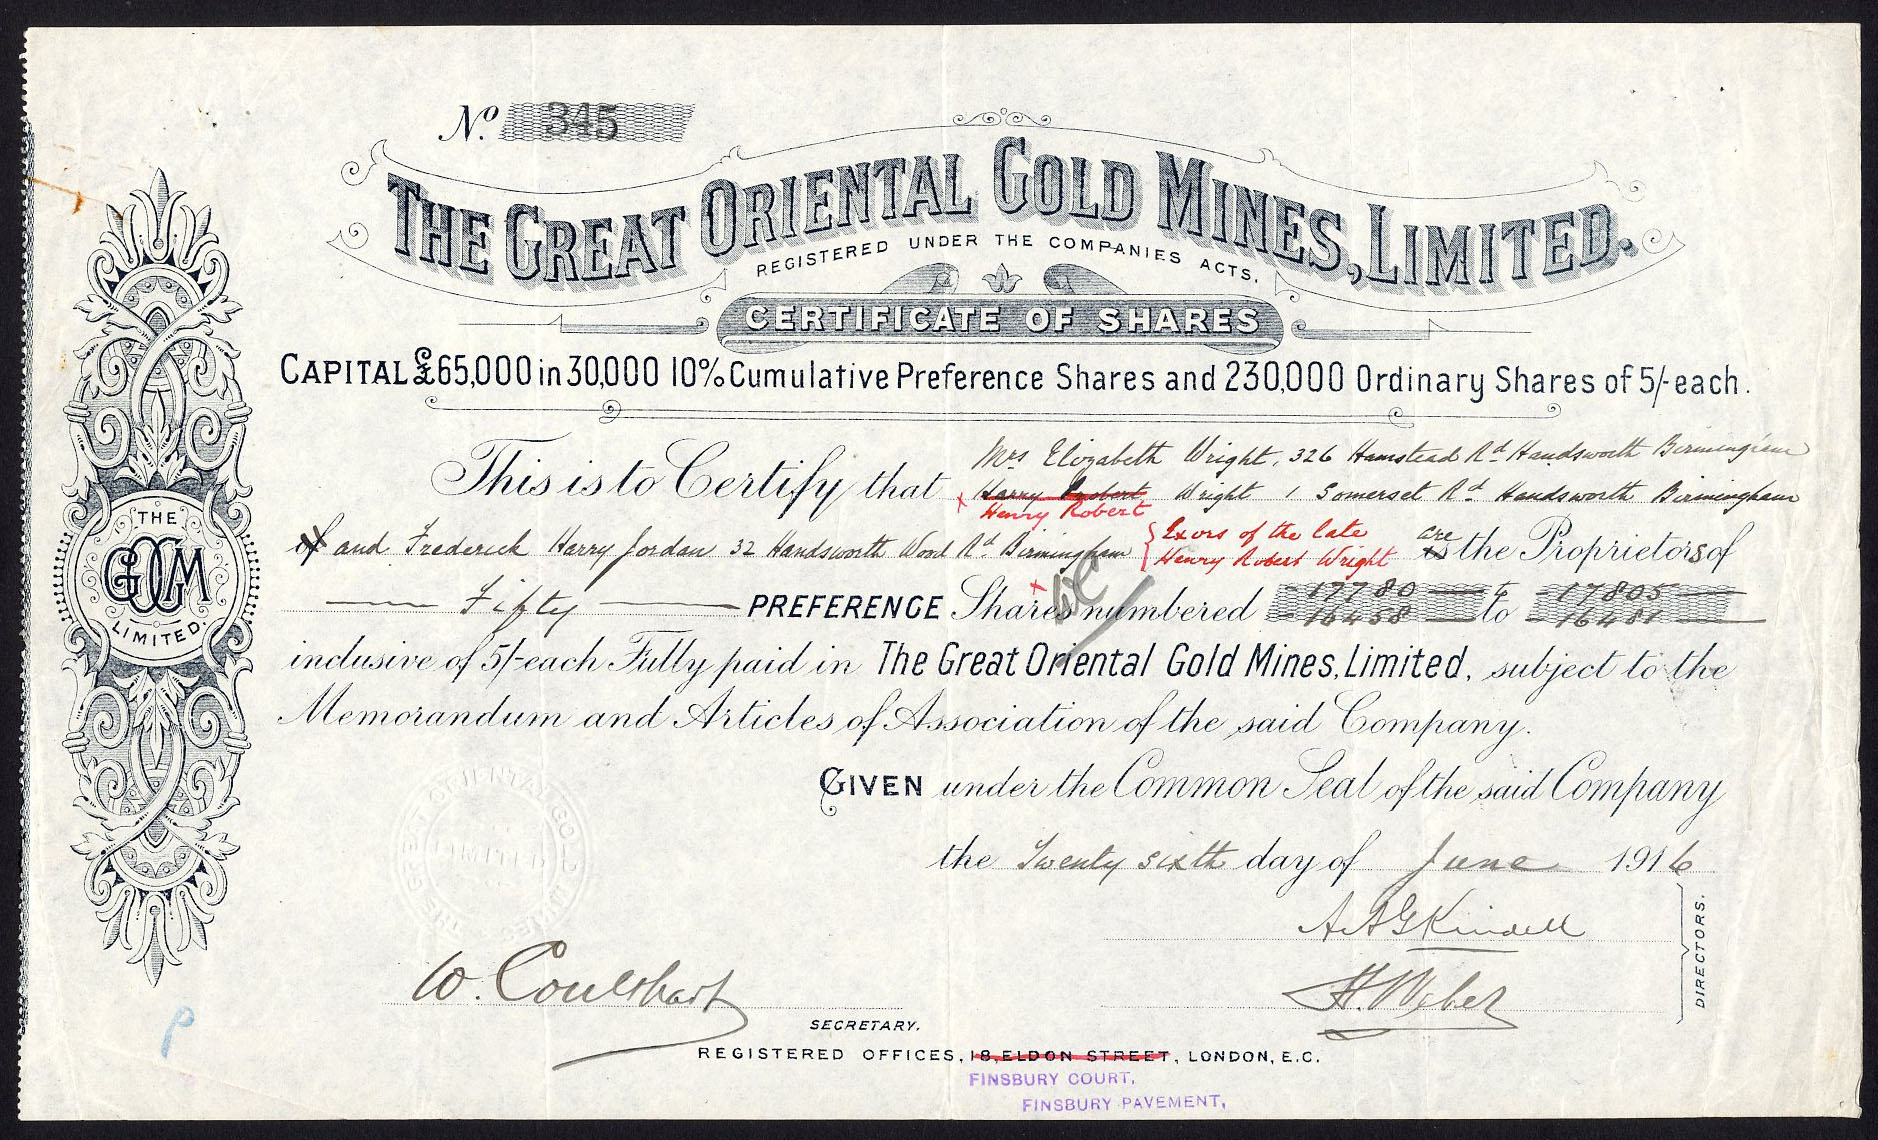 No. 345
THE GREAT ORIENTAL GOLD MINES, LIMITED.
REGISTERED UNDER THE COMPANIES ACTS.
CERTIFICATE OF SHARES
CAPITAL £65,000 in 30,000 10% Cumulative Preference Shares and 230,000 Ordinary Shares of 5/- each.
Mrs Elizabeth Wright, 326 Hamstead Rd Handsworth Birmingham
This is to Certify that x Harry Robert Wright 1 Somerset Rd Handsworth Birmingham
Henry Robert
of and Frederick Harry Jordan 32 Handsworth Wood Rd Birmingham { Exors of the late are is the Proprietors of
Henry Robert Wright
17780 to 17805
Fifty PREFERENCE Shares numbered 16458 to 16481
inclusive of 5/- each Fully paid in The Great Oriental Gold Mines, Limited, subject to the
Memorandum and Articles of Association of the said Company.
GIVEN under the Common Seal of the said Company
the Twenty sixth day of June 1916
A. A. G. Kindell
H. Weber
DIRECTORS.
W. Coulshart
SECRETARY.
REGISTERED OFFICES, 18, ELDON STREET, LONDON, E.C.
FINSBURY COURT,
FINSBURY PAVEMENT,
THE
GOGM
LIMITED.
THE GREAT ORIENTAL GOLD MINES
LIMITED
P